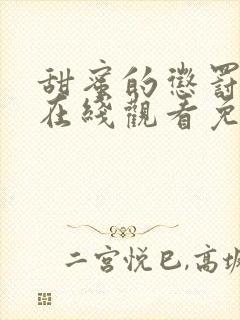 甜蜜的懲罰
在綫觀看免
二宫悦巳,高坂